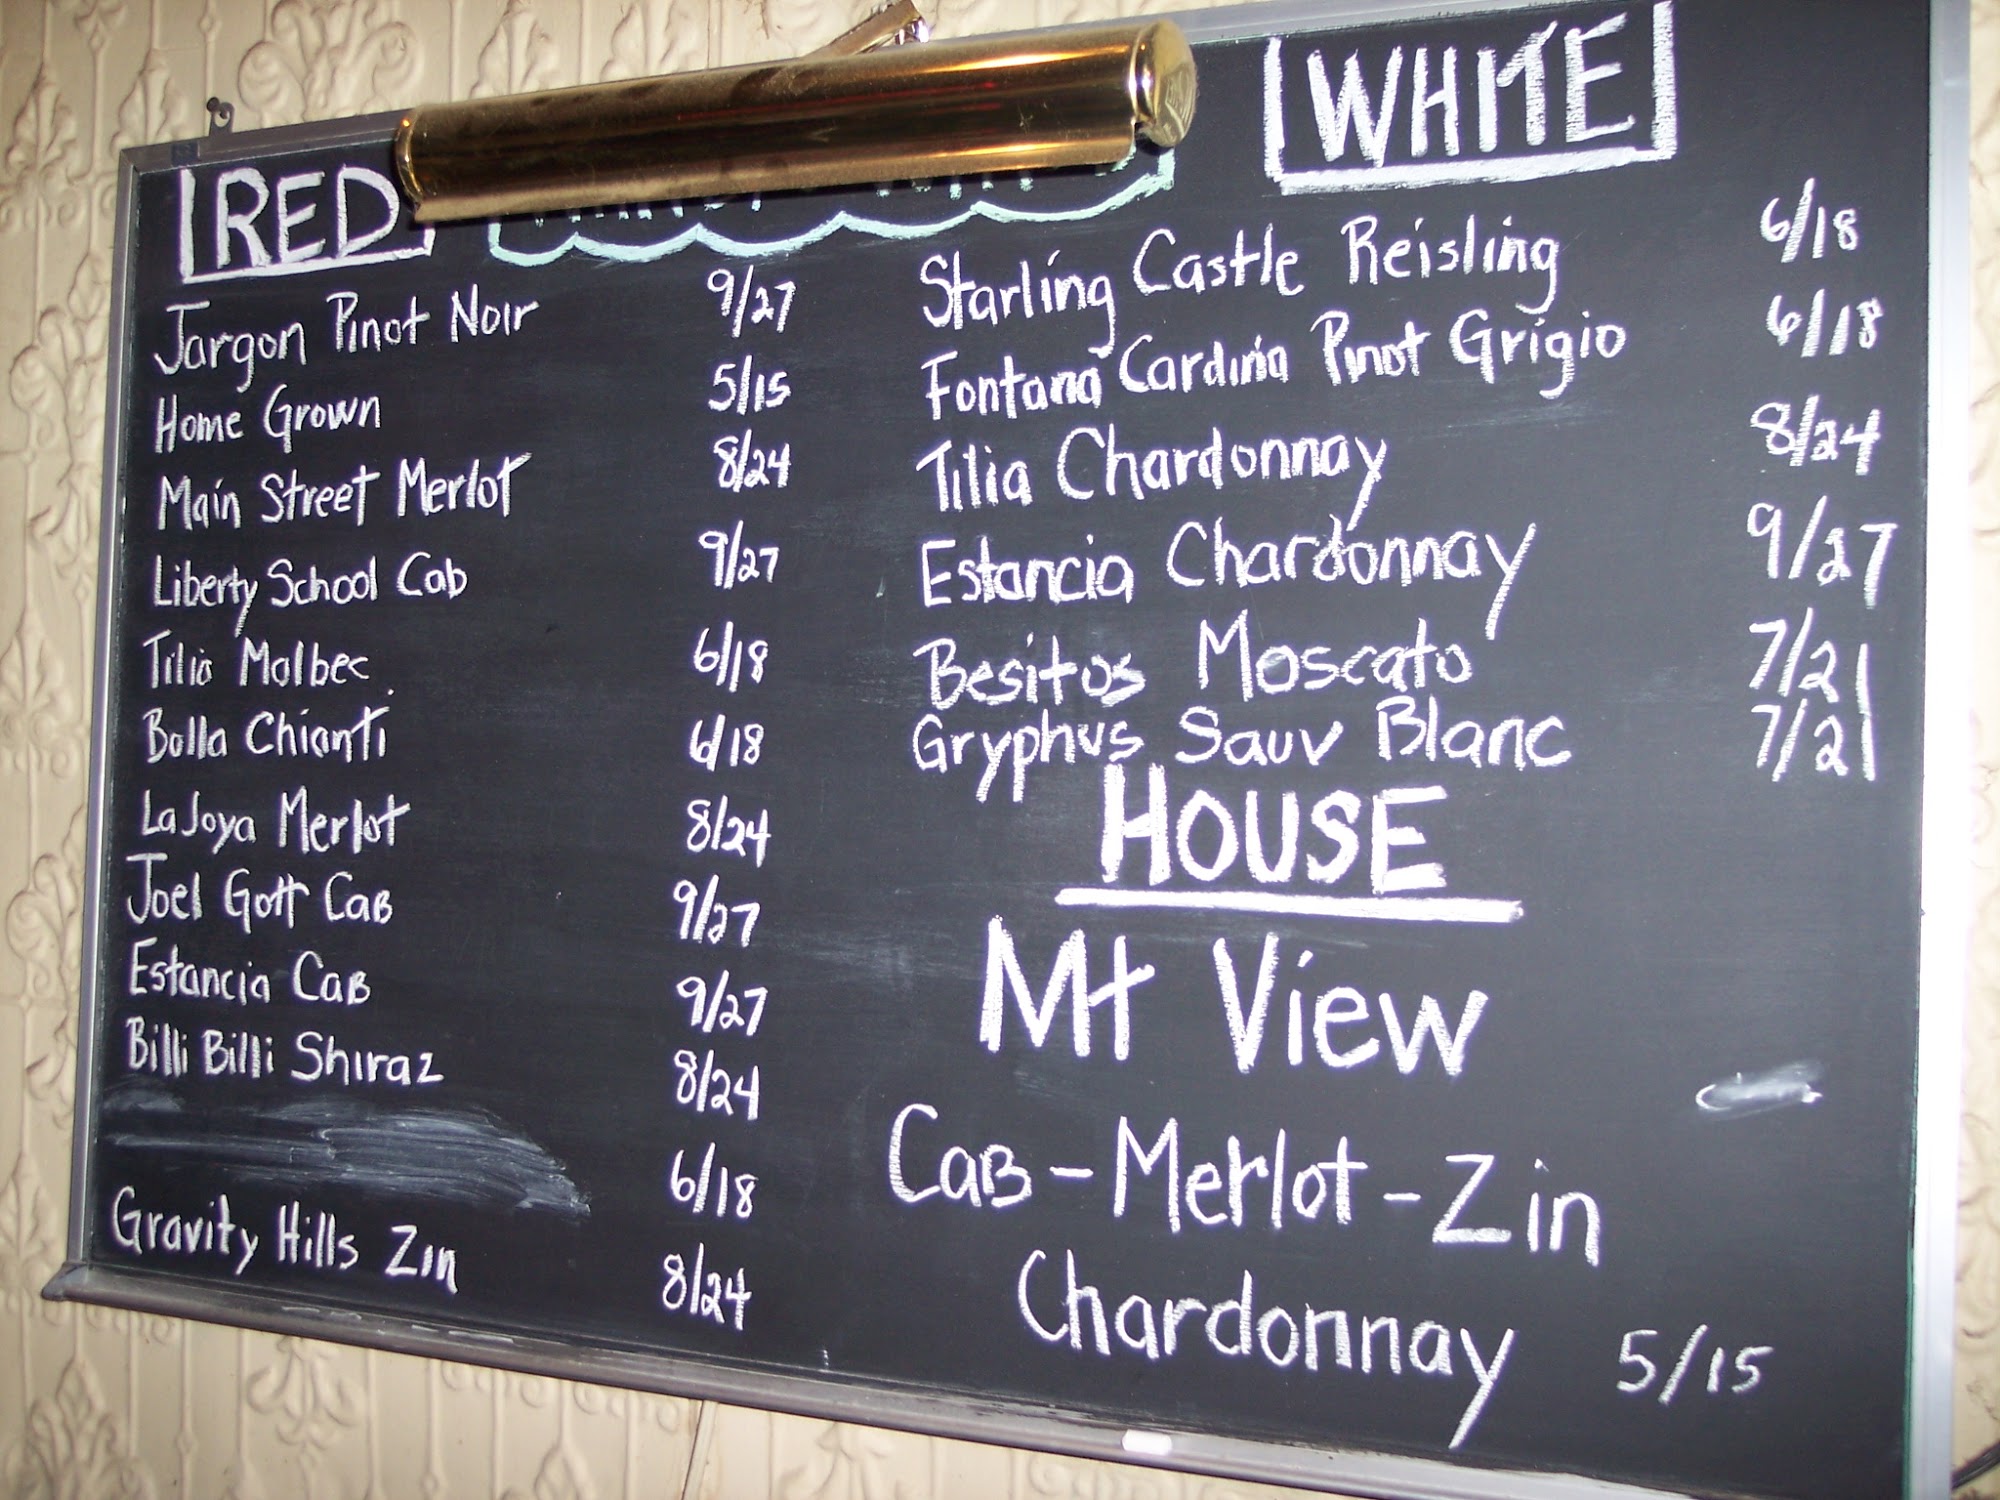 RED
Jargon Pinot Noir 9/27
Home Grown 5/15
Main Street Merlot 8/24
Liberty School Cab 9/27
Tilia Malbec 6/18
Bolla Chianti 6/18
La Joya Merlot 8/24
Joel Gott Cab 9/27
Estancia Cab 9/27
Billi Billi Shiraz 8/24
6/18
Gravity Hills Zin 8/24
WHITE
Starling Castle Reisling 6/18
Fontana Cardina Pinot Grigio 6/18
Tilia Chardonnay 8/24
Estancia Chardonnay 9/27
Besitos Moscato 7/21
Gryphus Sauv Blanc 7/21
HOUSE
Mt View
Cab - Merlot - Zin
Chardonnay 5/15